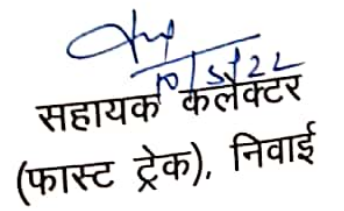 10/5/22
सहायक कलैक्टर
(फास्ट ट्रेक), निवाई